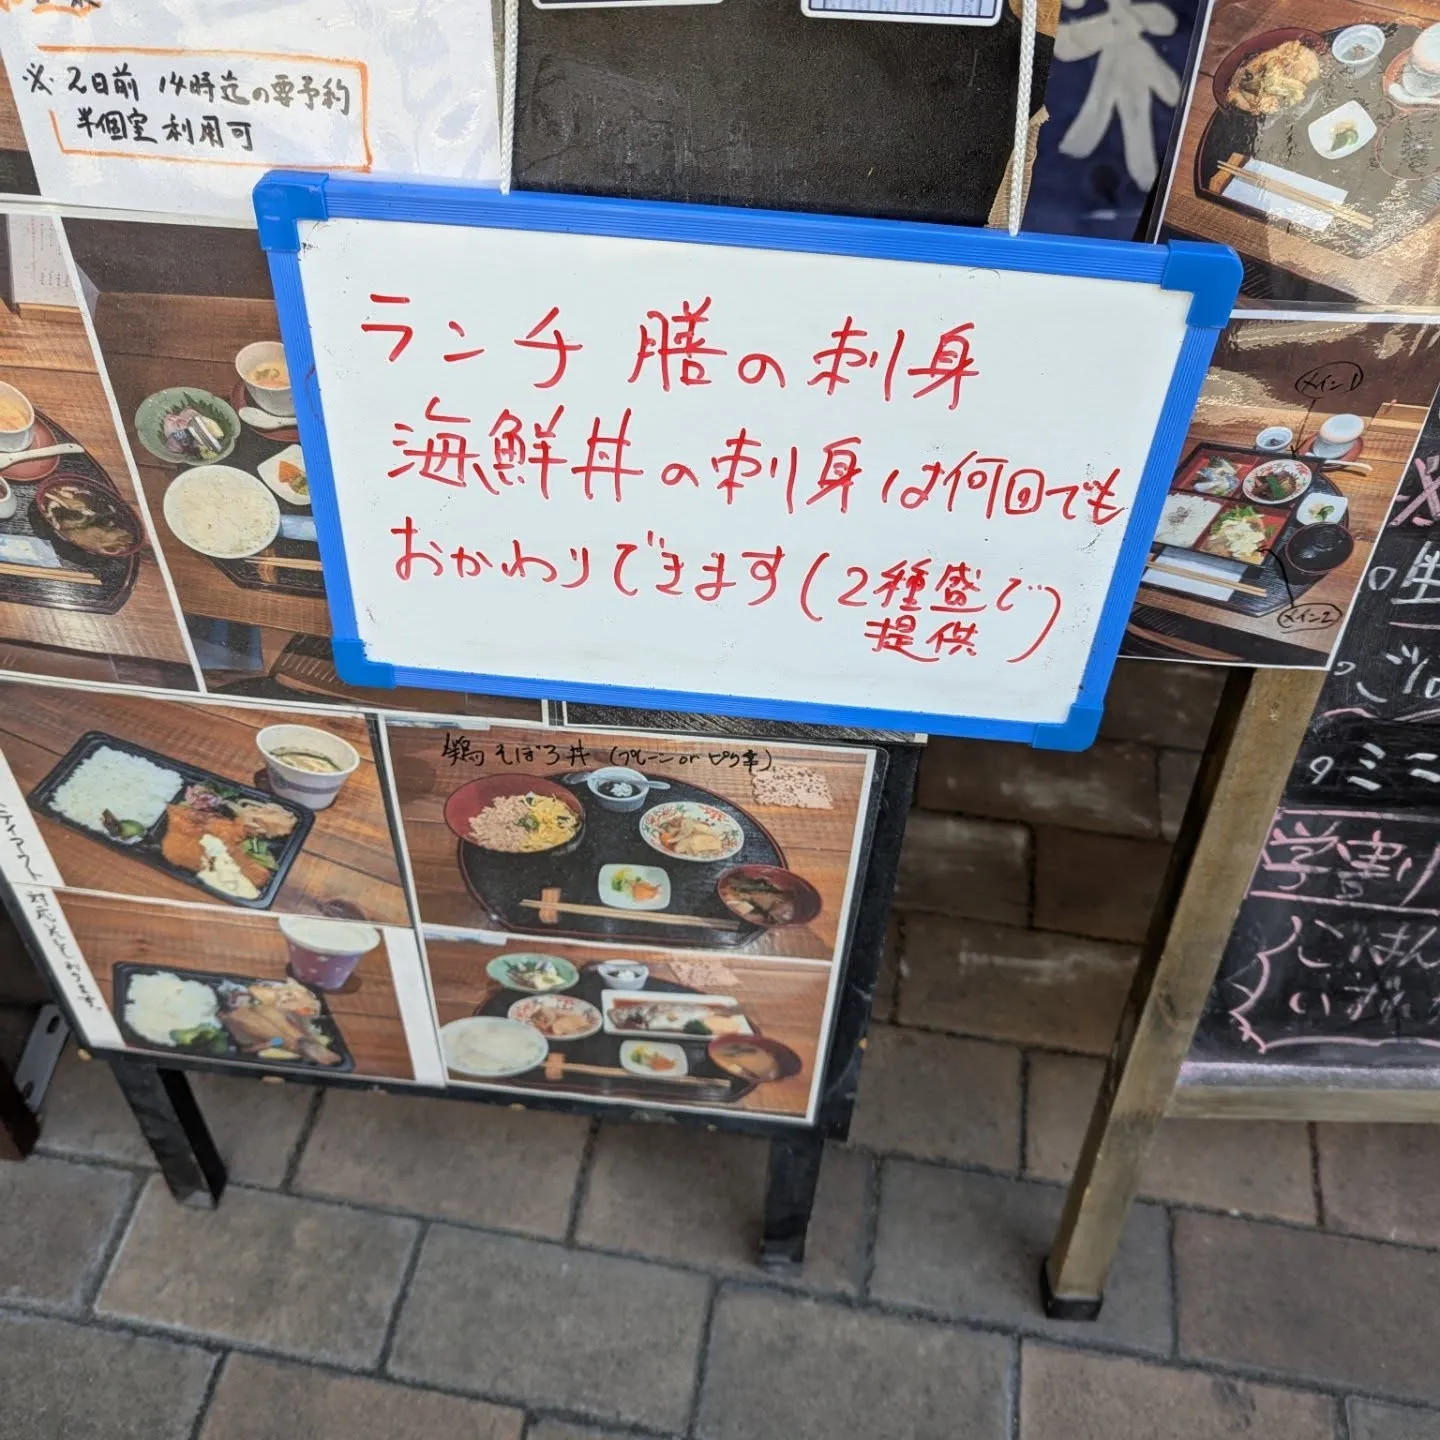 ※2日前 14時迄の要予約
半個室利用可
ランチ 膳の刺身
海鮮丼の刺身は何回でも
おかわりできます(2種盛で
提供)
メイン1
メイン2
鶏そぼろ丼 (プレーン or ピリ辛)
対応しております。
学割
ごはん